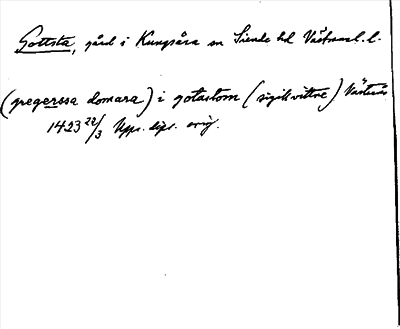 Gottsta, gård i Kungsåra sn Siende hd Västmanl. l.
(gregerssa domara) i gotastom (sigillvittne) Västerås
1423 22/3 Upps. dipl. orig.